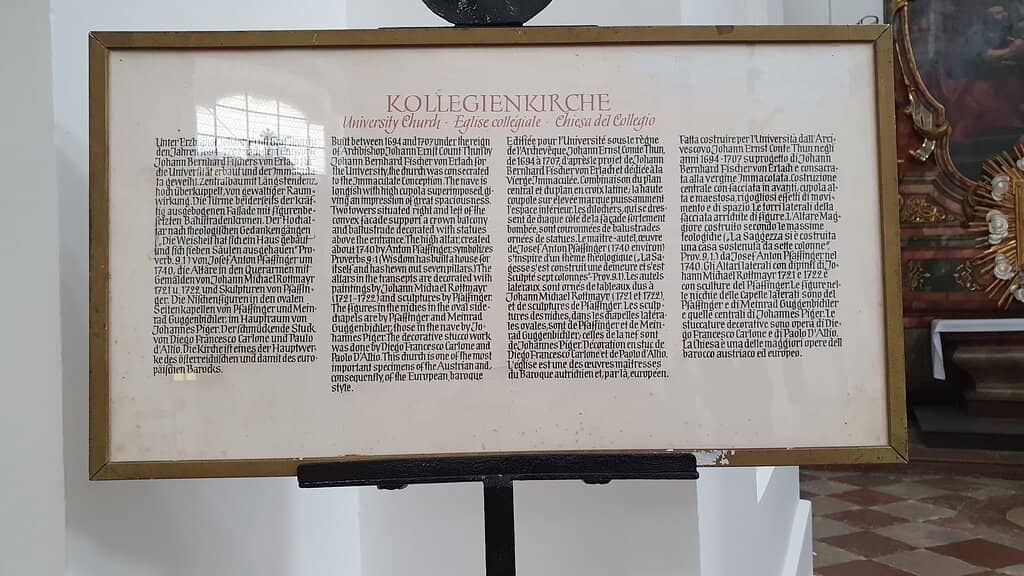 KOLLEGIENKIRCHE
University Church · Eglise collégiate · Chiesa del Collegio
Unter Erzb
den Jahren
Johann Bernhard Fischers von Erlach
die Universität erbaut und der Immacula-
ta geweiht. Zentralbau mit Längstendenz,
hochüberkuppelt, von gewaltiger Raum-
wirkung. Die Türme beiderseits der kräf-
tig ausgebogenen Fassade mit figurenbe-
setzten Balustradenkronen. Der Hochal-
tar nach theologischen Gedankengängen
(„Die Weisheit hat sich ein Haus gebaut
und sich sieben Säulen ausgehauen" Pro-
verb. 9,1) von Josef Anton Pfaffinger um
1740, die Altäre in den Querarmen mit
Gemälden von Johann Michael Rottmayr
1721 u. 1722 und Skulpturen von Pfaffin-
ger. Die Nischenfiguren in den ovalen
Seitenkapellen von Pfaffinger und Mein-
rad Guggenbichler, im Hauptraum von
Johannes Piger. Der schmückende Stuck
von Diego Francesco Carlone und Paulo
d'Allio. Die Kirche ist eines der Hauptwer-
ke des österreichischen und damit des euro-
päischen Barocks.
Built between 1694 and 1697 under the reign
of Archbishop Johann Ernst Count Thun by
Johann Bernhard Fischer von Erlach for
the University, the church was consecrated
to the Immaculate Conception. The nave is
longish with high cupola superimposed, gi-
ving an impression of great spaciousness.
Two towers situated right and left of the
convex facade support a crown balcony
and ballustrade decorated with statues
above the entrance. The high altar, created
about 1740 by Anton Pfaffinger, symbolizes
Proverbs 9:1 (Wisdom has built a house for
itself and has hewn out seven pillars). The
altars in the transepts are decorated with
paintings by Johann Michael Rottmayr
(1721-1722) and sculptures by Pfaffinger.
The figures in the niches in the oval side-
chapels are by Pfaffinger and Meinrad
Guggenbichler, those in the nave by Jo-
hannes Piger. The decorative stucco work
was done by Diego Francesco Carlone and
Paolo D'Allio. This church is one of the most
important specimens of the Austrian and,
consequently, of the European, baroque
style.
Edifiée pour l'Université sous le règne
de l'Archevêque, Johann Ernst Comte Thun,
de 1694 à 1707 d'après le projet de Johann
Bernhard Fischer von Erlach et dédiée à la
Vierge Immaculée. Combinaison du plan
central et du plan en croix latine; la haute
coupole sur élevée marque puissamment
l'espace intérieur. Les clochers, qui se dres-
sent de chaque côté de la façade fortement
bombée, sont couronnées de balustrades
ornées de statues. Le maître-autel, œuvre
de Josef Anton Pfaffinger (1740 environ)
s'inspire d'un thème théologique („La Sa-
gesse s'est construit une demeure et s'est
sculpté sept colonnes"- Prov. 9,1). Les autels
latéraux sont ornés de tableaux dus à
Johann Michael Rottmayr (1721 et 1722),
et de sculptures de Pfaffinger. Les sculp-
tures des niches, dans les chapelles latéra-
les ovales, sont de Pfaffinger et de Mein-
rad Guggenbichler; celles de la nef sont
de Johannes Piger. Décoration en stuc de
Diego Francesco Carlone et de Paolo D'Allio.
L'église est une des œuvres maîtresses
du Baroque autrichien et, par là, européen.
Fatta costruire per l'Università dall'Arci-
vescovo Johann Ernst Conte Thun negli
anni 1694-1707 su progetto di Johann
Bernhard Fischer von Erlach e consacra-
ta alla vergine Immacolata. Costruzione
centrale con facciata in avanti, cupola al-
ta e maestosa, rigogliosi effetti di movi-
mento e di spazio. Le torri laterali della
facciata arricchite di figure. L'Altare Mag-
giore costruito secondo le massime
teologiche („La Saggezza si è costruita
una casa sostenuta da sette colonne",
Prov. 9,1.) da Josef Anton Pfaffinger nel
1740. Gli Altari laterali con dipinti di Jo-
hann Michael Rottmayr 1721 e 1722 e
con sculture del Pfaffinger. Le figure nel-
le nicchie delle Capelle laterali sono del
Pfaffinger e di Meinrad Guggenbichler
e quelle centrali di Johannes Piger. Le
stuccature decorative sono opera di Die-
go Francesco Carlone e di Paolo D'Allio.
La Chiesa è una delle maggiori opere dell
barocco austriaco ed europeo.